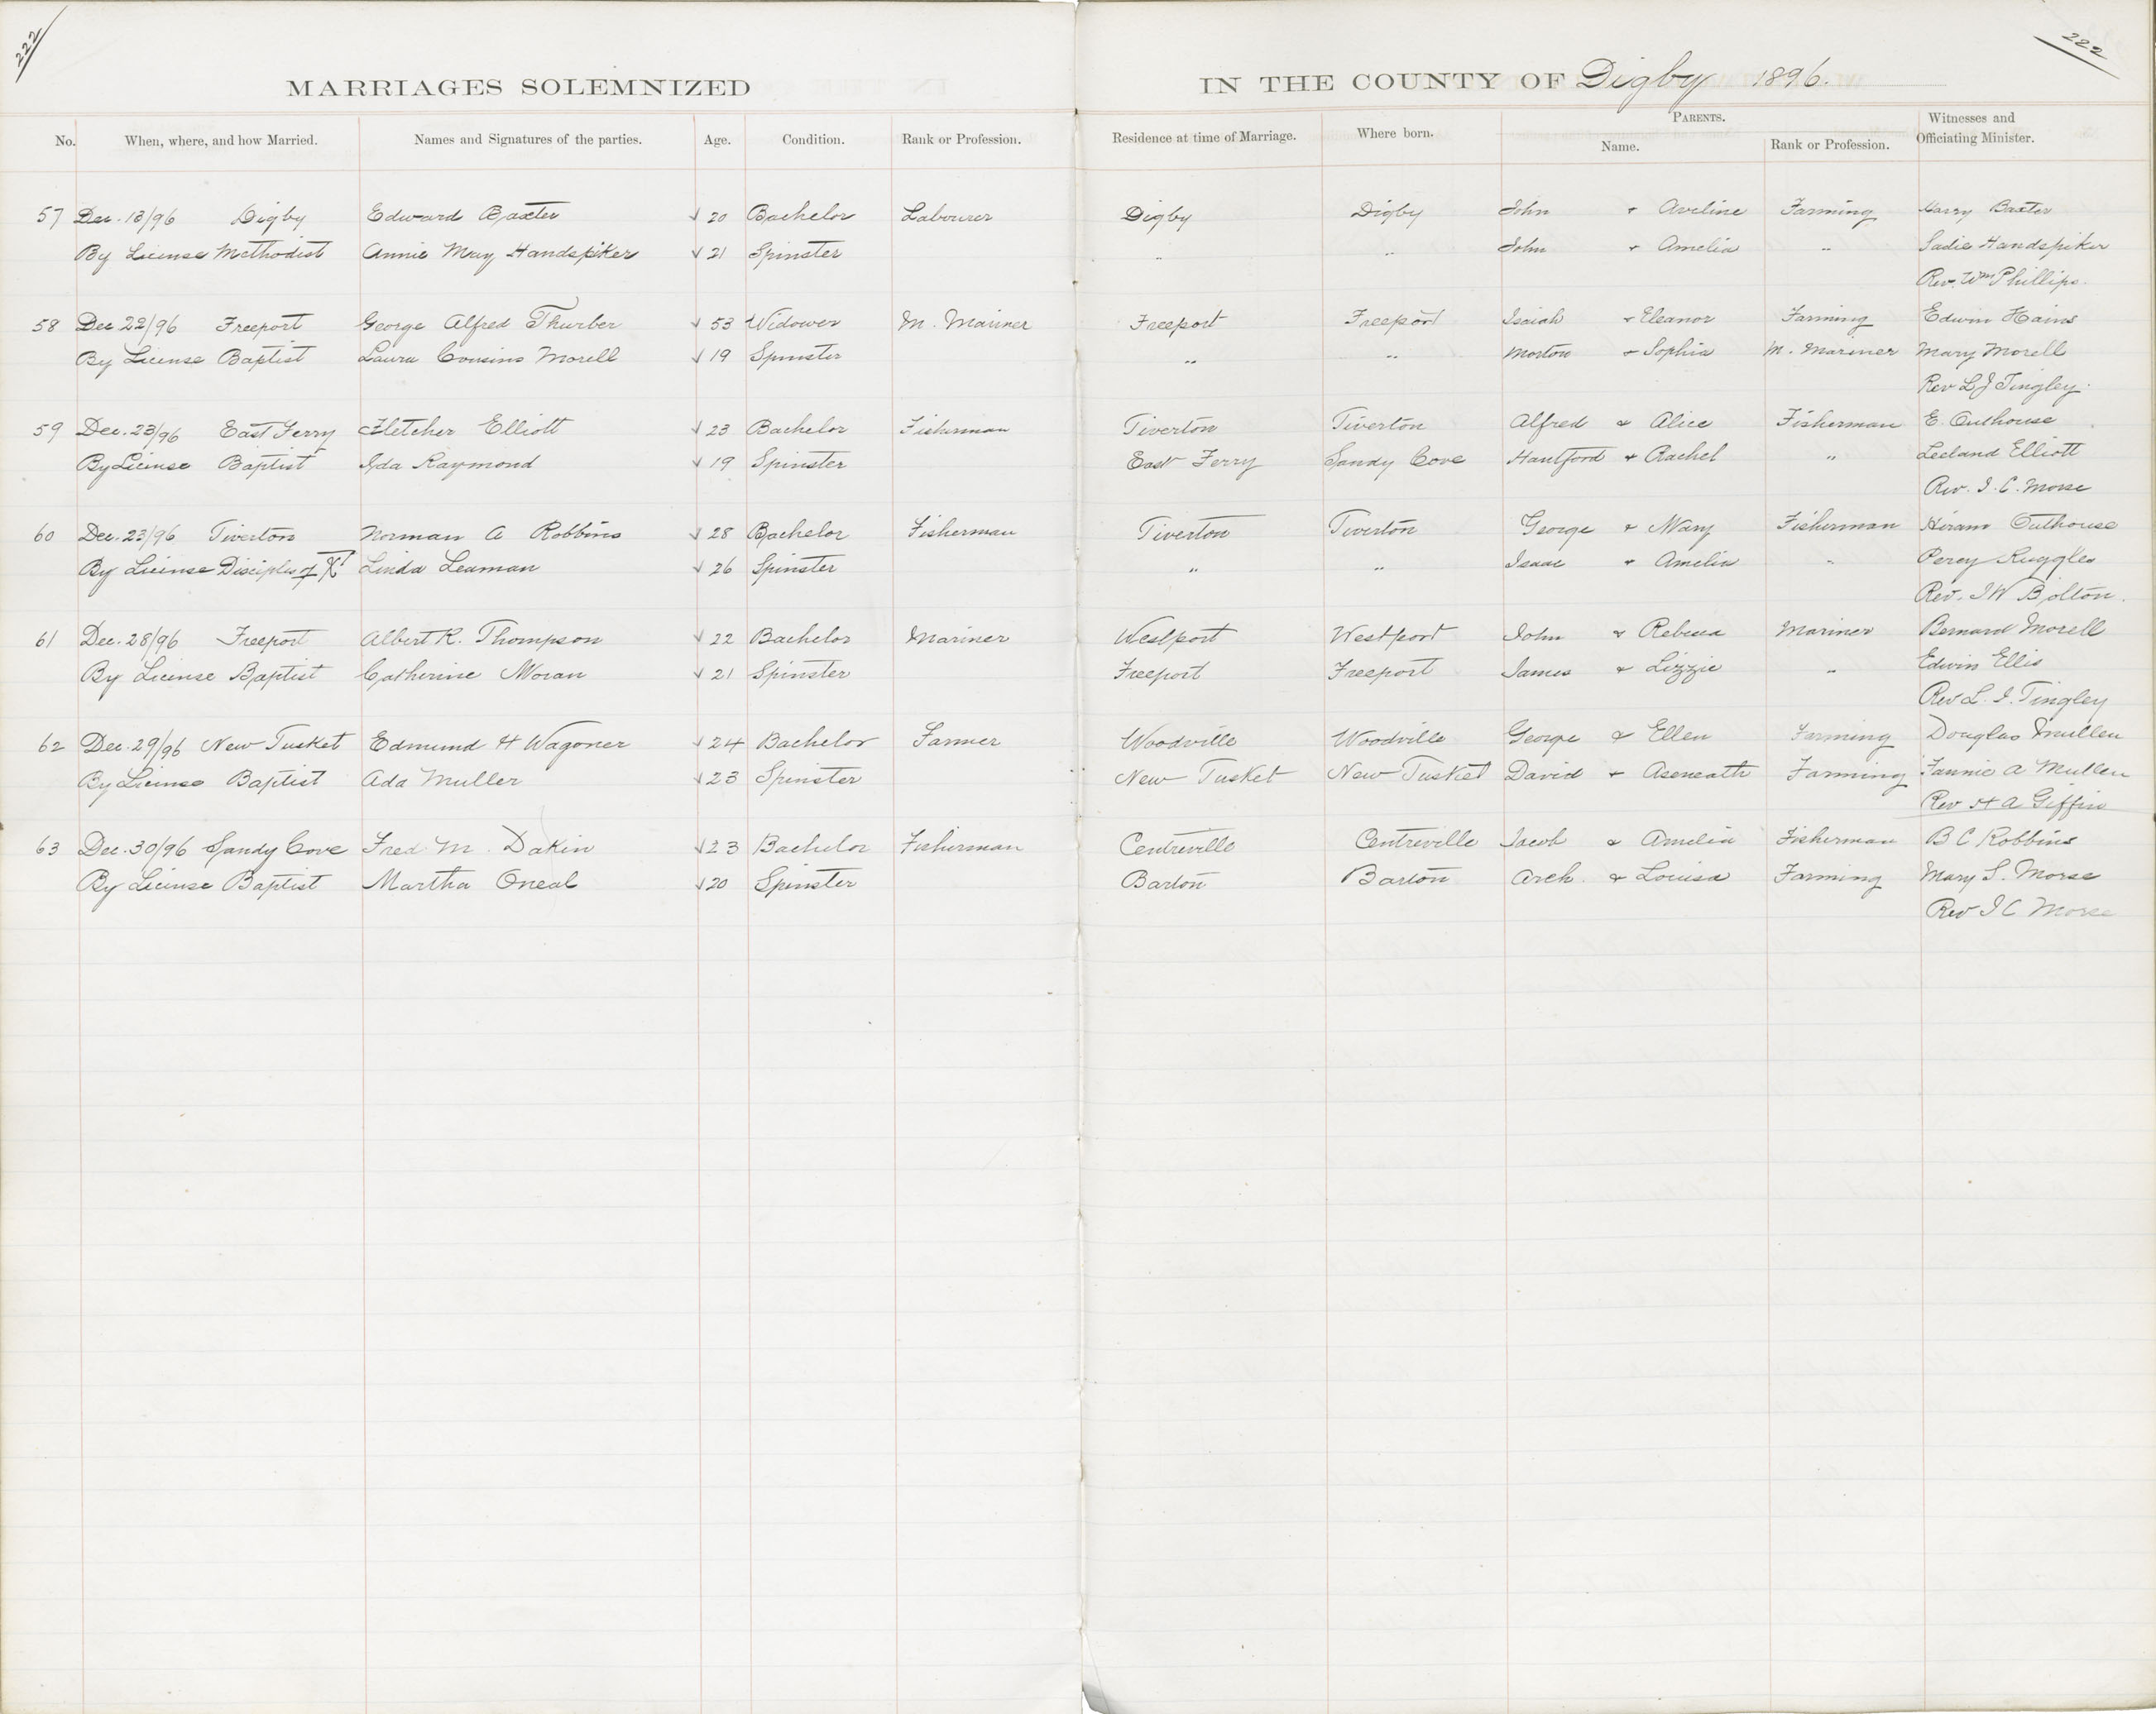 222 222
MARRIAGES SOLEMNIZED IN THE COUNTY OF Digby 1896.
No. When, where, and how Married. Names and Signatures of the parties. Age. Condition. Rank or Profession. Residence at time of Marriage. Where born. PARENTS. Name. Rank or Profession. Witnesses and Officiating Minister.
57 Dec. 13/96 Digby Edward Baxter √ 20 Bachelor Labourer Digby Digby John + Aveline Farming Harry Baxter
By License Methodist Annie May Handspiker √ 21 Spinster " " John + Amelia " Sadie Handspiker
Rev. Wm Phillips.
58 Dec 22/96 Freeport George Alfred Thurber √ 53 Widower M. Mariner Freeport Freeport Isaiah + Eleanor Farming Edwin Hains
By License Baptist Laura Cousins Morell √ 19 Spinster " " Morton + Sophia M. Mariner Mary Morell
Rev L J Tingley.
59 Dec. 23/96 East Ferry Fletcher Elliott √ 23 Bachelor Fisherman Tiverton Tiverton Alfred & Alice Fisherman E. Outhouse
By License Baptist Ida Raymond √ 19 Spinster East Ferry Sandy Cove Hantford + Rachel " Leeland Elliott
Rev. I. C. Morse
60 Dec. 23/96 Tiverton Norman A Robbins √ 28 Bachelor Fisherman Tiverton Tiverton George + Mary Fisherman Hiram Outhouse
By License Disciples of X Linda Leaman √ 26 Spinster " " Isaac + Amelia " Percy Ruggles
Rev. I W Bolton.
61 Dec. 28/96 Freeport Albert R. Thompson √ 22 Bachelor Mariner Westport Westport John & Rebecca Mariner Bernard Morell
By License Baptist Catherine Moran √ 21 Spinster Freeport Freeport James & Lizzie " Edwin Ellis
Rev L. J. Tingley
62 Dec. 29/96 New Tusket Edmund H Wagoner √ 24 Bachelor Farmer Woodville Woodville George & Ellen Farming Douglas Mullen
By License Baptist Ada Muller √ 23 Spinster New Tusket New Tusket David + Aseneath Farming Fannie A Mullen
Rev H A Giffin
63 Dec. 30/96 Sandy Cove Fred M. Dakin √ 23 Bachelor Fisherman Centreville Centreville Jacob & Amelia Fisherman B C Robbins
By License Baptist Martha Oneal √ 20 Spinster Barton Barton Arch. & Louisa Farming Mary S. Morse
Rev I C Morse